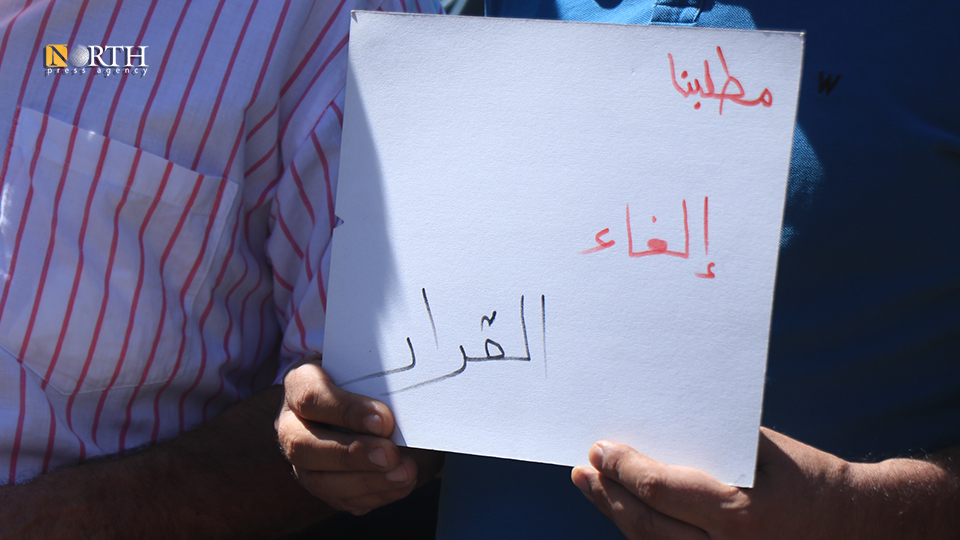 NORTH
press agency
مطلبنا
W
إلغاء
القرار